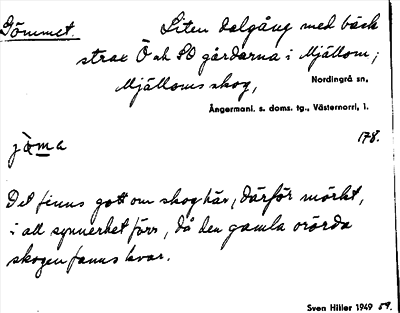 Gömmet. Liten dalgång med bäck
strax Ö och SO gårdarna i Mjällom;
Mjälloms skog, Nordingrå sn,
Ångermanl. s. doms. tg., Västernorrl. l.
178.
jö̀m̲a
Det finns gott om skog här, därför mörkt,
i all synnerhet förr, då den gamla orörda
skogen fanns kvar.
Sven Hiller 1949 59.